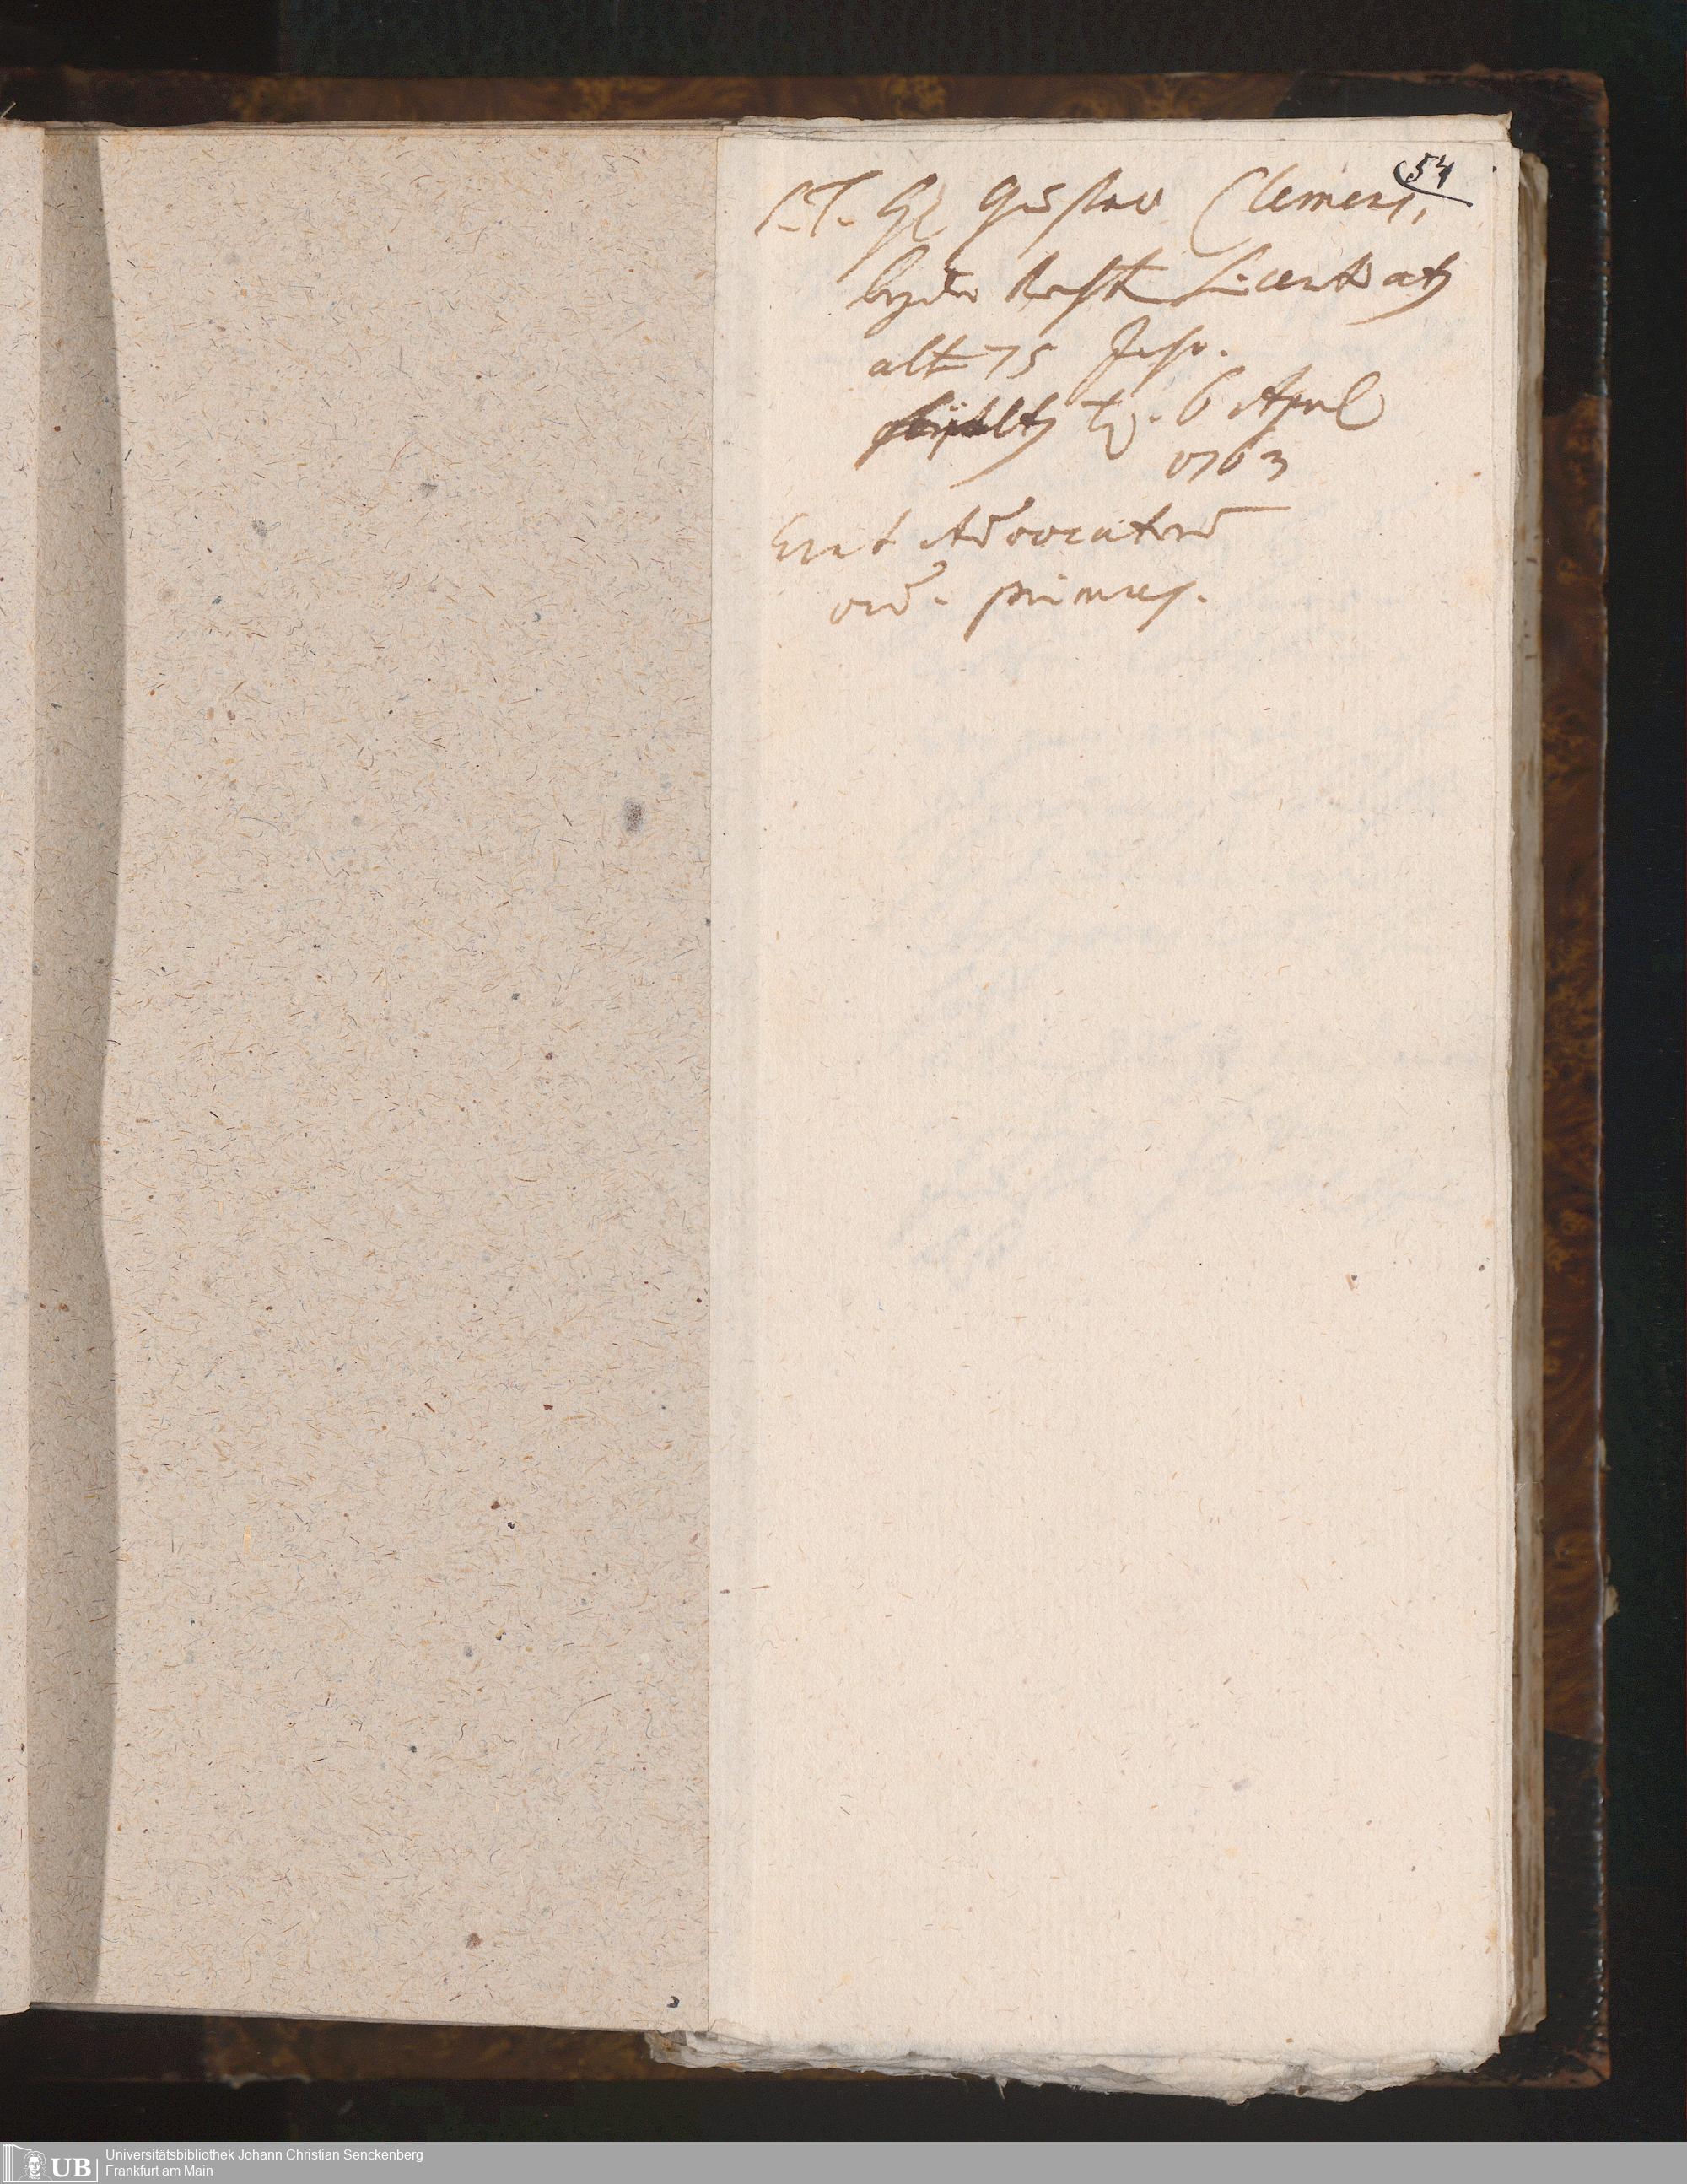 54
S. T. H Gustav Clemens,
beyder Recht Licentiat
alt 75 Jahr.
d. 6 April
1763
Erat Advocatorū
ord. primus.
UB
Universitätsbibliothek Johann Christian Senckenberg
Frankfurt am Main